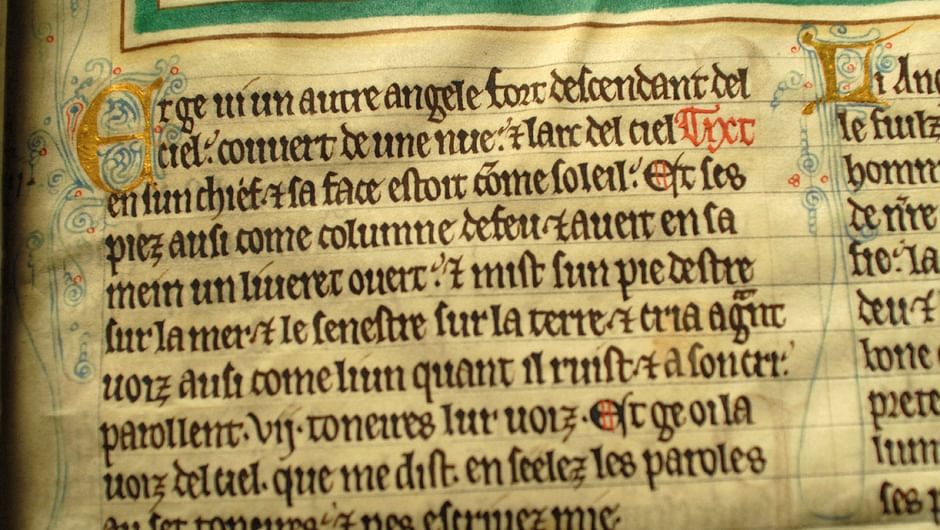 Et ge ui un autre angele fort descendant del
ciel: couuert de une nue: ⁊ larc del ciel
en sun chief. ⁊ sa face estoit cõme soleil: Et ses
piez ausi come columne de feu. ⁊ aueit en sa
mein un liueret ouert: ⁊ mist sun pie destre
sur la mer. ⁊ le senestre sur la terre. ⁊ cria a
uoiz ausi come liun quant il ruist. ⁊ a son cri:
parollent. vij. toneires lur uoiz. Et ge oi la
uoiz del ciel. que me dist. en seelez les paroles
toneires. ⁊ nes escriuez mie.
Li Ang
le fuilz
homm
de nr̃e
fie: la
deu ⁊
bone
prete
lum
ses p